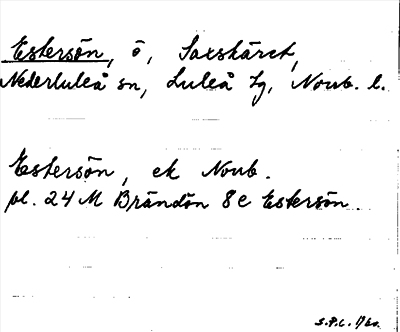 Estersön, ö, Saxskäret,
Nederluleå sn, Luleå tg, Norrb. l.
Estersön, ek Norrb.
pl. 24 M Brändön 8e Estersön.